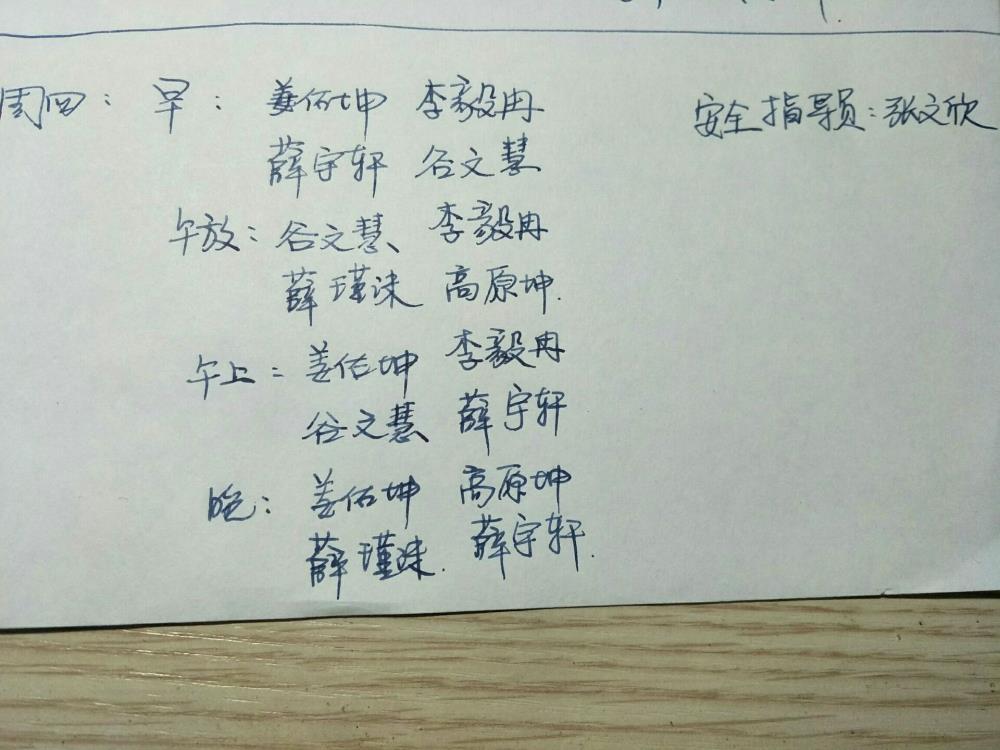 周四： 早： 姜佑坤 李毅冉 安全指导员：张文欣
薛宇轩 谷文慧
午放：谷文慧、 李毅冉
薛瑾洙 高原坤.
午上： 姜佑坤 李毅冉
谷文慧 薛宇轩
晚： 姜佑坤 高原坤
薛瑾洙. 薛宇轩.